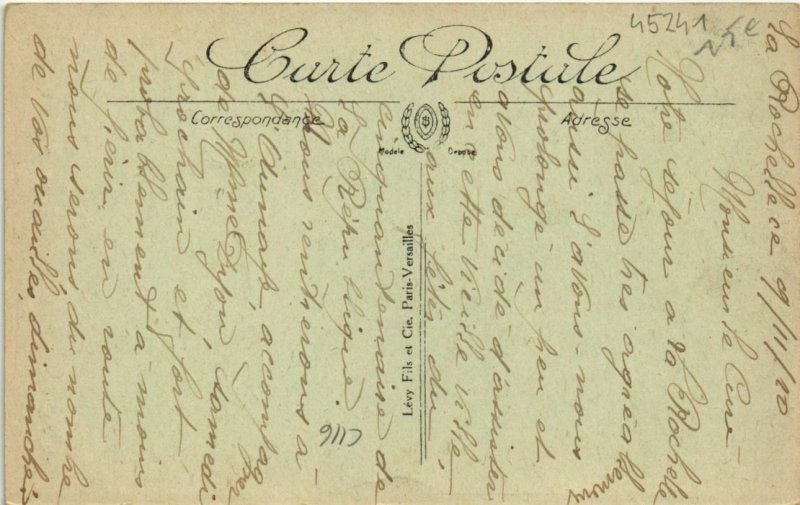 45241
Carte Postale
Correspondance
Adresse
Modèle Déposé
Lévy Fils et Cie, Paris-Versailles
9115
La Rochelle ce 9/11/20
Monsieur le Curé
Notre séjour à la Rochelle
se passe très agréablement
aussi l'avons-nous
prolongé un peu et
avons décidé d'assister
en cette vieille ville,
aux fêtes du
cinquantenaire de
la République
Nous rentrerons à
accompag
de Mme Dyon samedi
prochain et fort
probablement à moins
de finir en route
nous serons du nombre
de vos ouailles, dimanche.